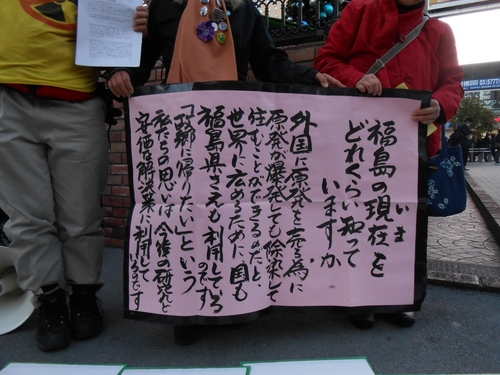 福島の現在を
いま
どれくらい知って
いますか
外国に原発を売る為に
原発が爆発しても除染して
住むことができるのだと、
世界に広めるために、国も
福島県さえも利用している
のです
「故郷に帰りたい」という
私たちの思いは今後の研究と
安価な解決策に利用して
いるのです